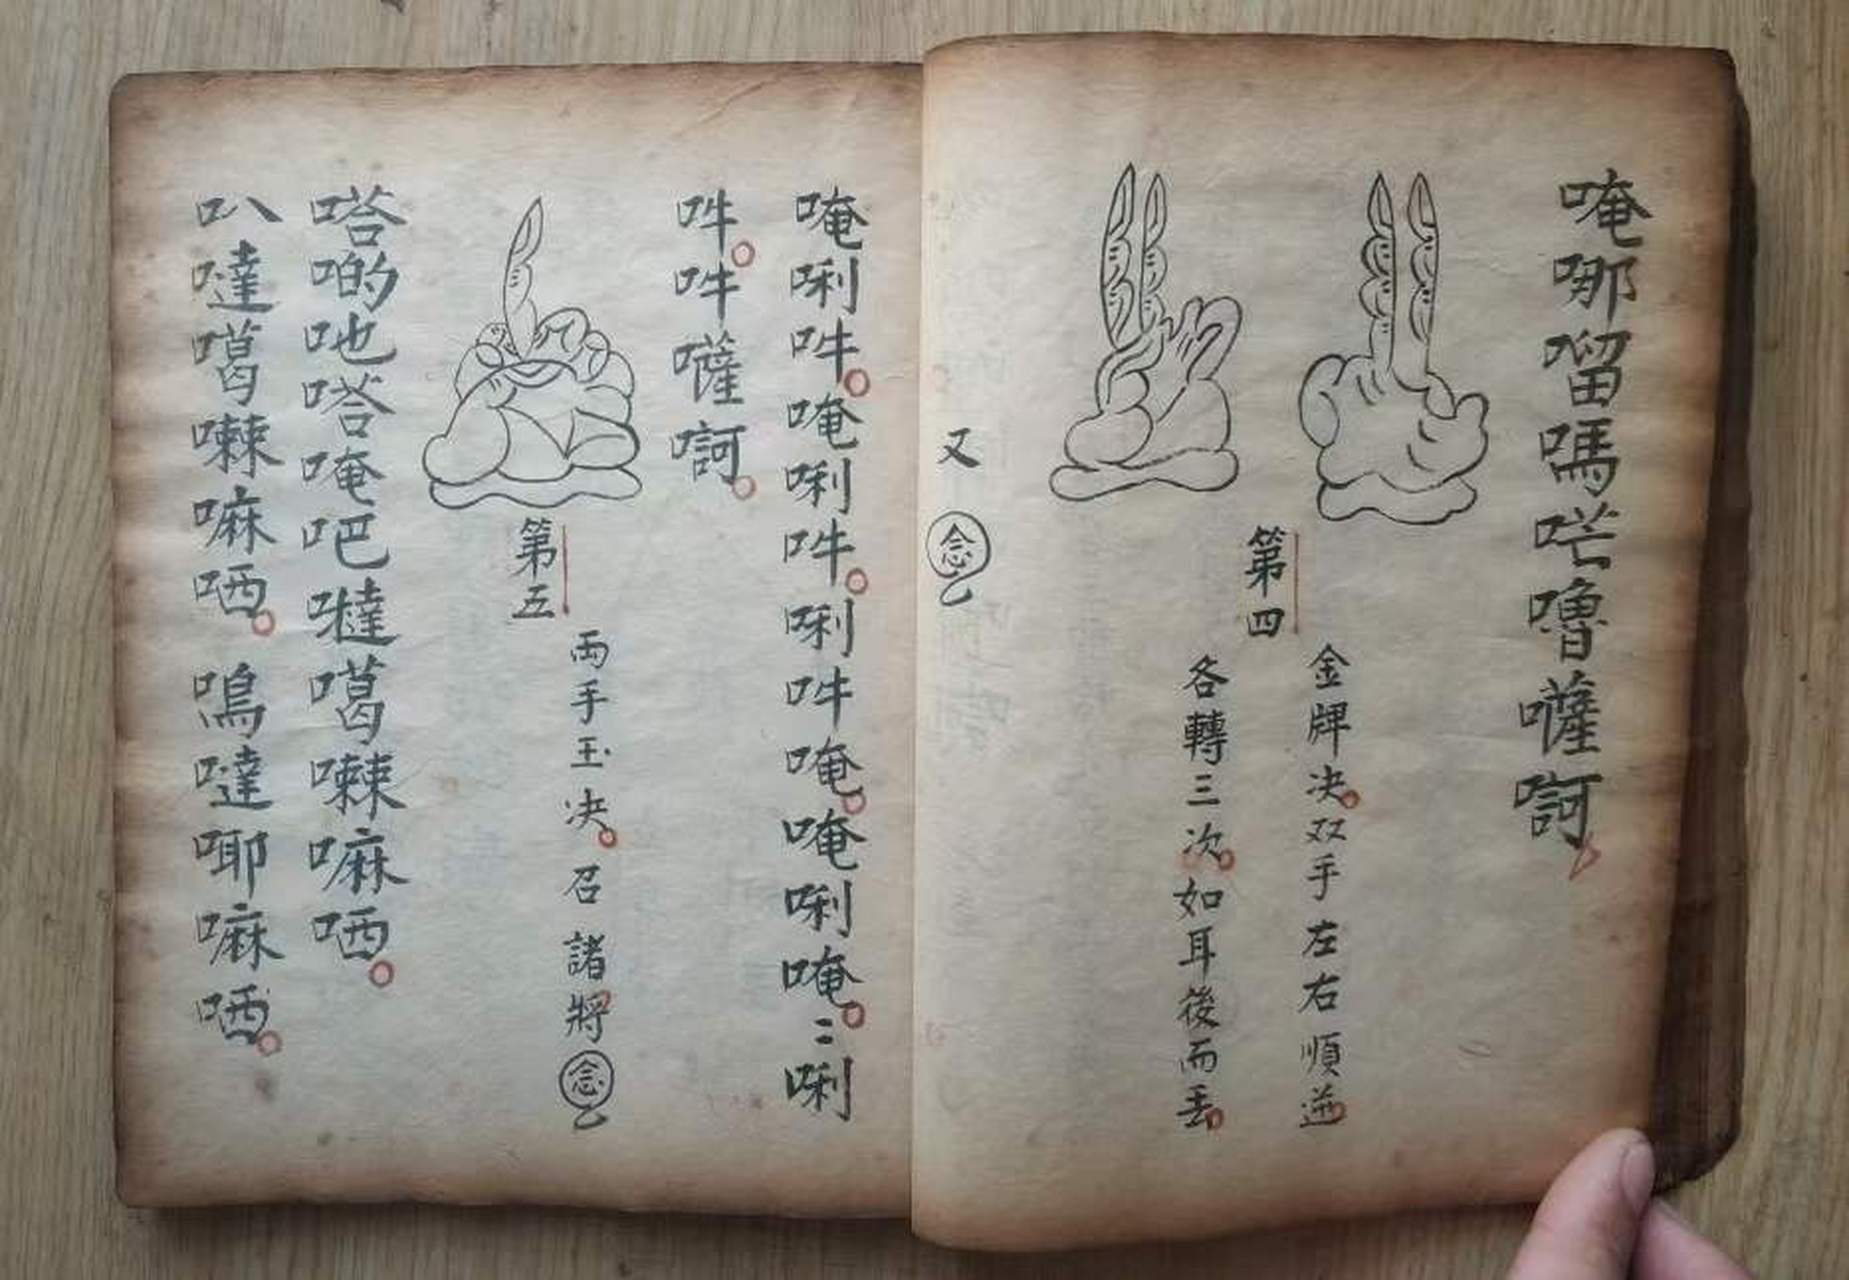 唵哪㗰嗎㟐嚕囋訶
第四
金牌决双手左右順逆
各轉三次如耳後而丢
又念
唵唎吽唵唎吽唎吽唵唵唎唵〻唎
吽吽𠿒㗿
第五
両手玉决召諸將念
嗒啲吔嗒唵吧噠噶㖨嘛哂
叭噠噶㖨嘛哂嗚噠㖿嘛哂